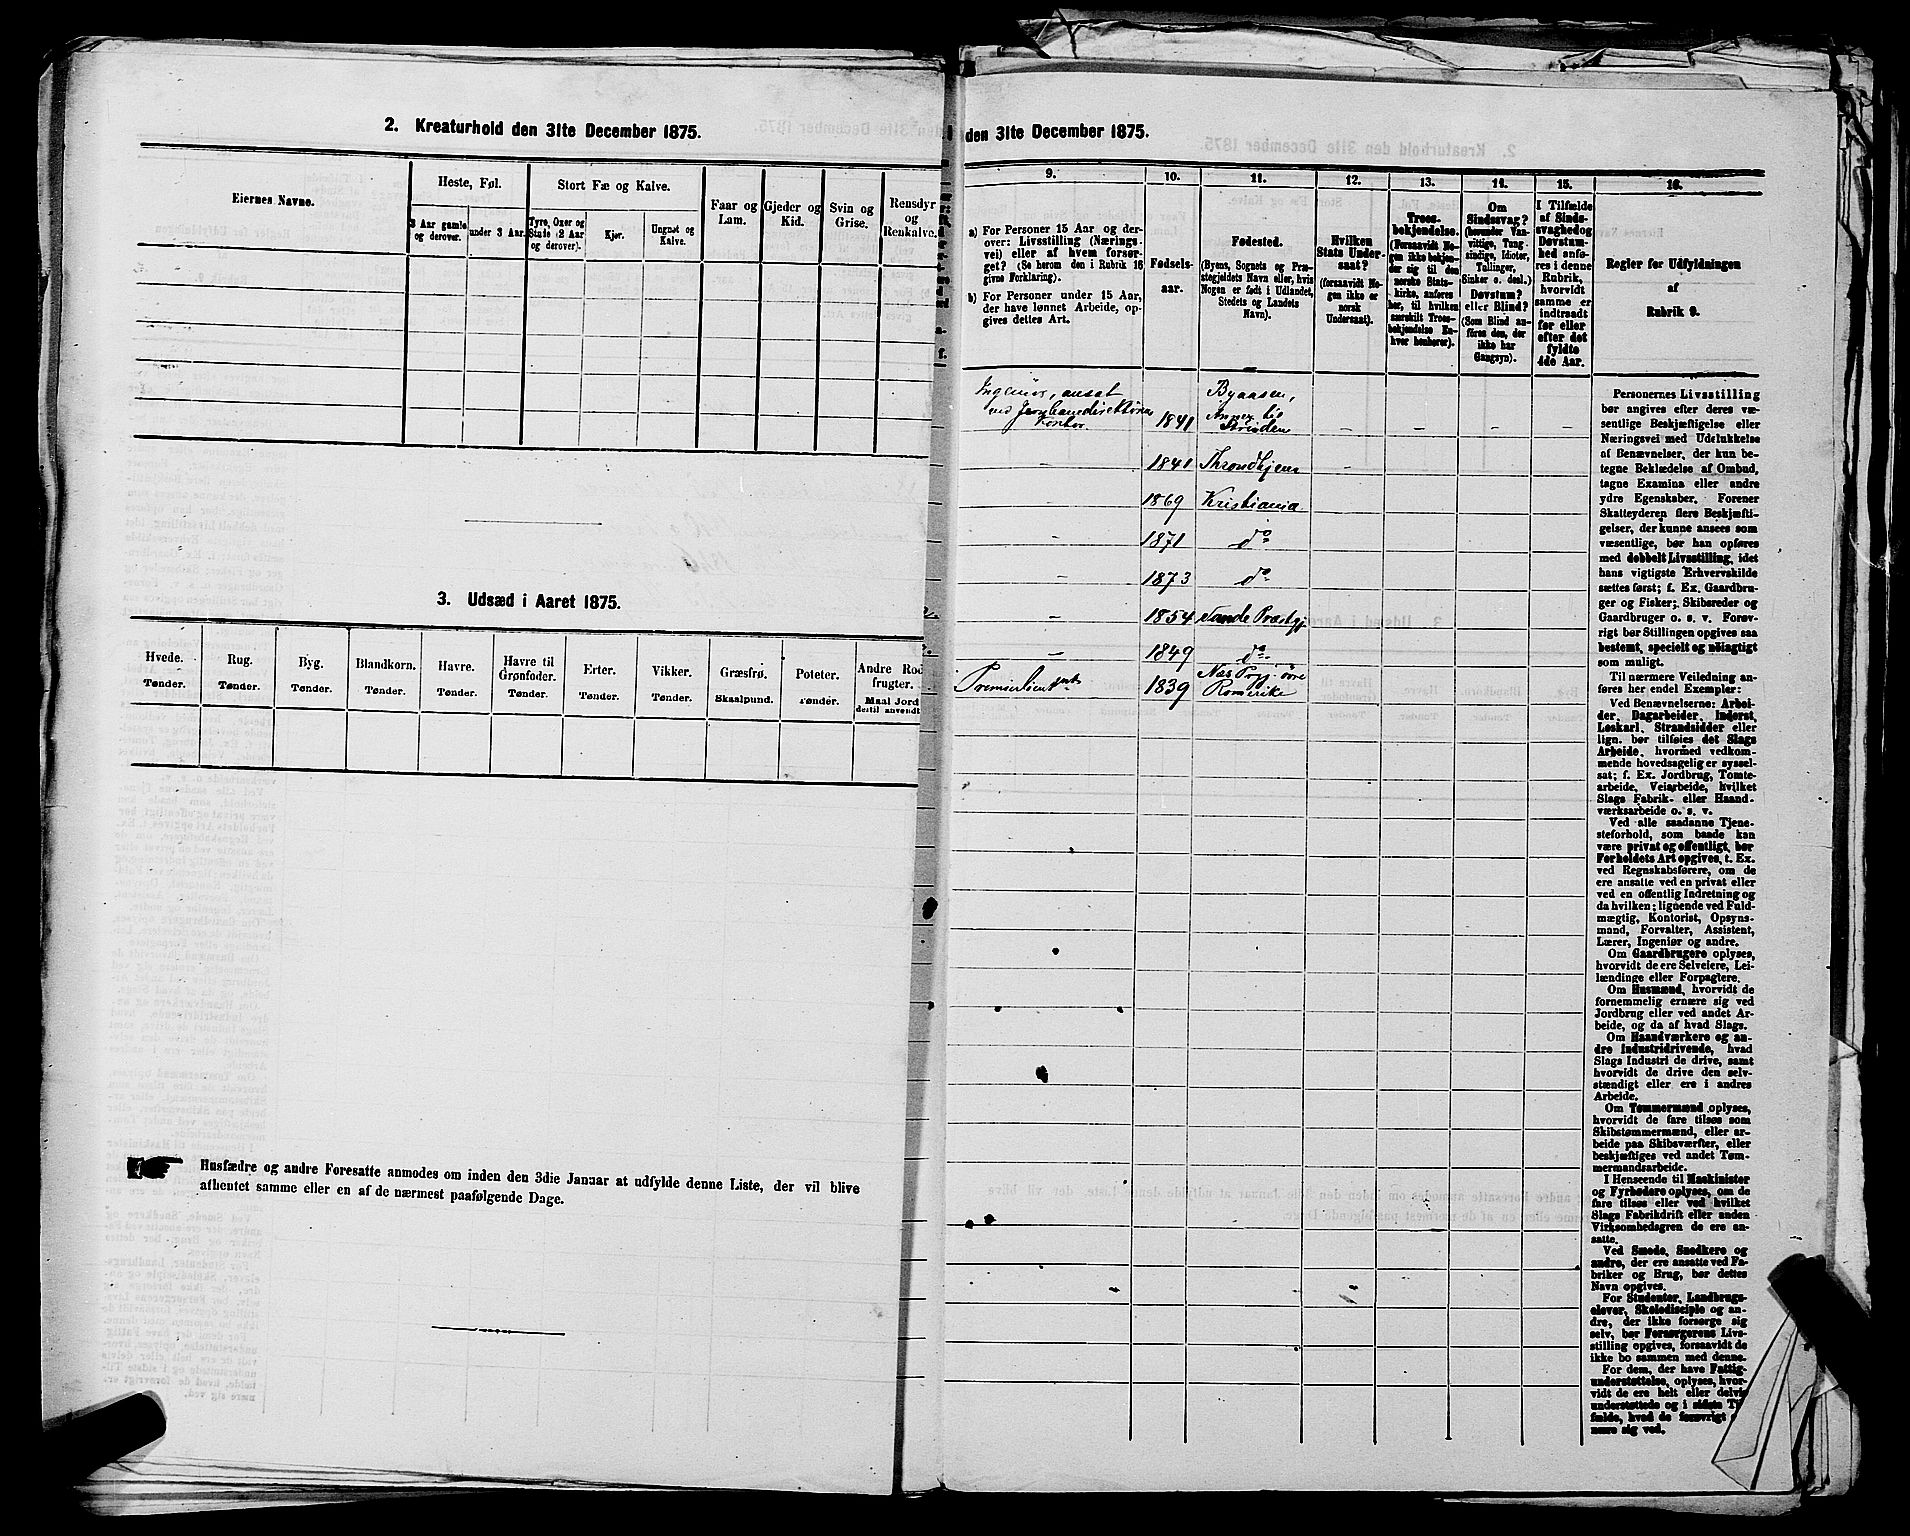 2. Kreaturhold den 31te December 1875.
Eiernes Navne.
Heste, Føl.
3 Aar gamle og derover.
under 3 Aar.
Stort Fæ og Kalve.
Tyre, Oxer og Stude (2 Aar og derover).
Kjør.
Ungnøt og Kalve.
Faar og Lam.
Gjeder og Kid.
Svin og Grise.
Rensdyr og Renkalve.
3. Udsæd i Aaret 1875.
Hvede. Tønder.
Rug. Tønder.
Byg. Tønder.
Blandkorn. Tønder.
Havre. Tønder.
Havre til Grønfoder. Tønder.
Erter. Tønder.
Vikker. Tønder.
Græsfrø. Skaalpund.
Poteter. Tønder.
Andre Rod
frugter.
Maal Jord
dertil anvendt
Husfædre og andre Foresatte anmodes om inden den 3die Januar at udfylde denne Liste, der vil blive
afhentet samme eller en af de nærmest paafølgende Dage.
den 31te December 1875.
9.
a) For Personer 15 Aar og der-
over: Livsstilling (Nærings-
vei) eller af hvem forsør-
get? (Se herom den i Rubrik 16
givne Forklaring).
b) For Personer under 15 Aar,
der have lønnet Arbeide, op-
gives dettes Art.
10.
Fødsels-
aar.
11.
Fødested.
(Byens, Sognets og Præ-
stegjeldets Navn eller, hvis
Nogen er født i Udlandet,
Stedets og Landets
Navn).
12.
Hvilken
Stats Under-
saat?
(forsaavidt No-
gen ikke er
norsk
Undersaat).
13.
Troes-
bekjendelse.
(Forsaavidt No-
gen ikke bekjen-
der sig til den
norske Stats-
kirke, anføres
her, til hvilken
særskilt Troes-
bekjendelse En-
hver henhører).
14.
Om
Sindssvag?
(herunder Van-
vittige, Tung-
sindige, Idioter,
Tullinger,
Sinker o. desl.)
Døvstum?
eller Blind?
(Som Blind an-
føres den, der
ikke har
Gangsyn).
15.
I Tilfælde
af Sinds-
svaghed og
Døvstum-
hed anfø-
res i denne
Rubrik,
hvorvidt
samme er
indtraadt
før eller
efter det
fyldte
4de Aar.
16.
Regler for Udfyldningen
af
Rubrik 9.
Ingeniør, ansat
ved Jernbanedirektørens
Kontor.
1841
Byaasen,
Annex til
Strinden
– – – –
– 1841 Throndhjem –
– 1869 Kristiania
– 1871 do
– 1873 do
1854 Sande Præstgj.
– 1849 do
Premierlieutnant 1839 Næs Prgj. øvre
Romerike
Personernes Livsstilling
bør angives efter deres væ-
sentlige Beskjæftigelse eller
Næringsvei med Udelukkelse
af Benævnelser, der kun be-
tegne Beklædelse af Ombud,
tagne Examina eller andre
ydre Egenskaber. Forener
Skatteyderen flere Beskjæfti-
gelser, der kunne ansees som
væsentlige, bør han opføres
med dobbelt Livsstilling, idet
hans vigtigste Erhvervskilde
sættes først; f. Ex. Gaardbru-
ger og Fisker; Skibsreder og
Gaardbruger o. s. v. Forøv-
rigt bør Stillingen opgives saa
bestemt, specielt og nøiagtigt
som muligt.
Til nærmere Veiledning an-
føres her endel Exempler:
Ved Benævnelserne: Arbei-
der, Dagarbeider, Inderst,
Løskarl, Strandsidder eller
lign. bør tilføies det Slags
Arbeide, hvormed vedkom-
mende hovedsagelig er syssel-
sat; f. Ex. Jordbrug, Tomte-
arbeide, Veiarbeide, hvilket
Slags Fabrik- eller Haand-
værksarbeide o. s. v.
Ved alle saadanne Tjene-
steforhold, som baade kan
være privat og offentligt, bør
Forholdets Art opgives, f. Ex.
ved Regnskabsførere, om de
ere ansatte ved en privat eller
ved en offentlig Indretning og
da hvilken; lignende ved Fuld-
mægtig, Kontorist, Opsyns-
mand, Forvalter, Assistent,
Lærer, Ingeniør og andre.
Om Gaardbrugere oplyses,
hvorvidt de ere Selveiere, Lei-
lændinge eller Forpagtere.
Om Husmænd, hvorvidt de
fornemmelig ernære sig ved
Jordbrug eller ved andet Ar-
beide, og da af hvad Slags.
Om Haandværkere og an-
dre Industridrivende, hvad
Slags Industri de drive, samt
hvorvidt de drive den selv-
stændigt eller ere i andres
Arbeide.
Om Tømmermænd oplyses,
hvorvidt de fare tilsøs som
Skibstømmermænd, eller ar-
beide paa Skibsværfter, eller
beskjæftiges ved andet Tøm-
mermandsarbeide.
I Henseende til Maskinister
og Fyrbødere oplyses, om de
fare tilsøs eller ved hvilket
Slags Fabrikdrift eller anden
Virksomhedsgren de ere an-
satte.
Ved Smede, Snedkere og
andre, der ere ansatte ved Fa-
briker og Brug, bør dettes
Navn opgives.
For Studenter, Landbrugs-
elever, Skoledisciple og an-
dre, der ikke forsørge sig
selv, bør Forsørgerens Livs-
stilling opgives, forsaavidt de
ikke bo sammen med denne.
For dem, der have Fattig-
understøttelse, oplyses, hvor-
vidt de ere helt eller delvis
understøttede og i sidste Til-
fælde, hvad de forøvrigt
nære sig ved.